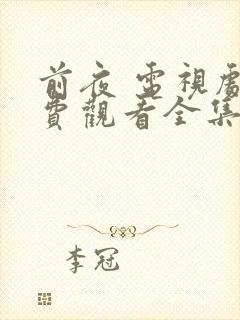 前夜 電視劇
費觀看全集
李冠